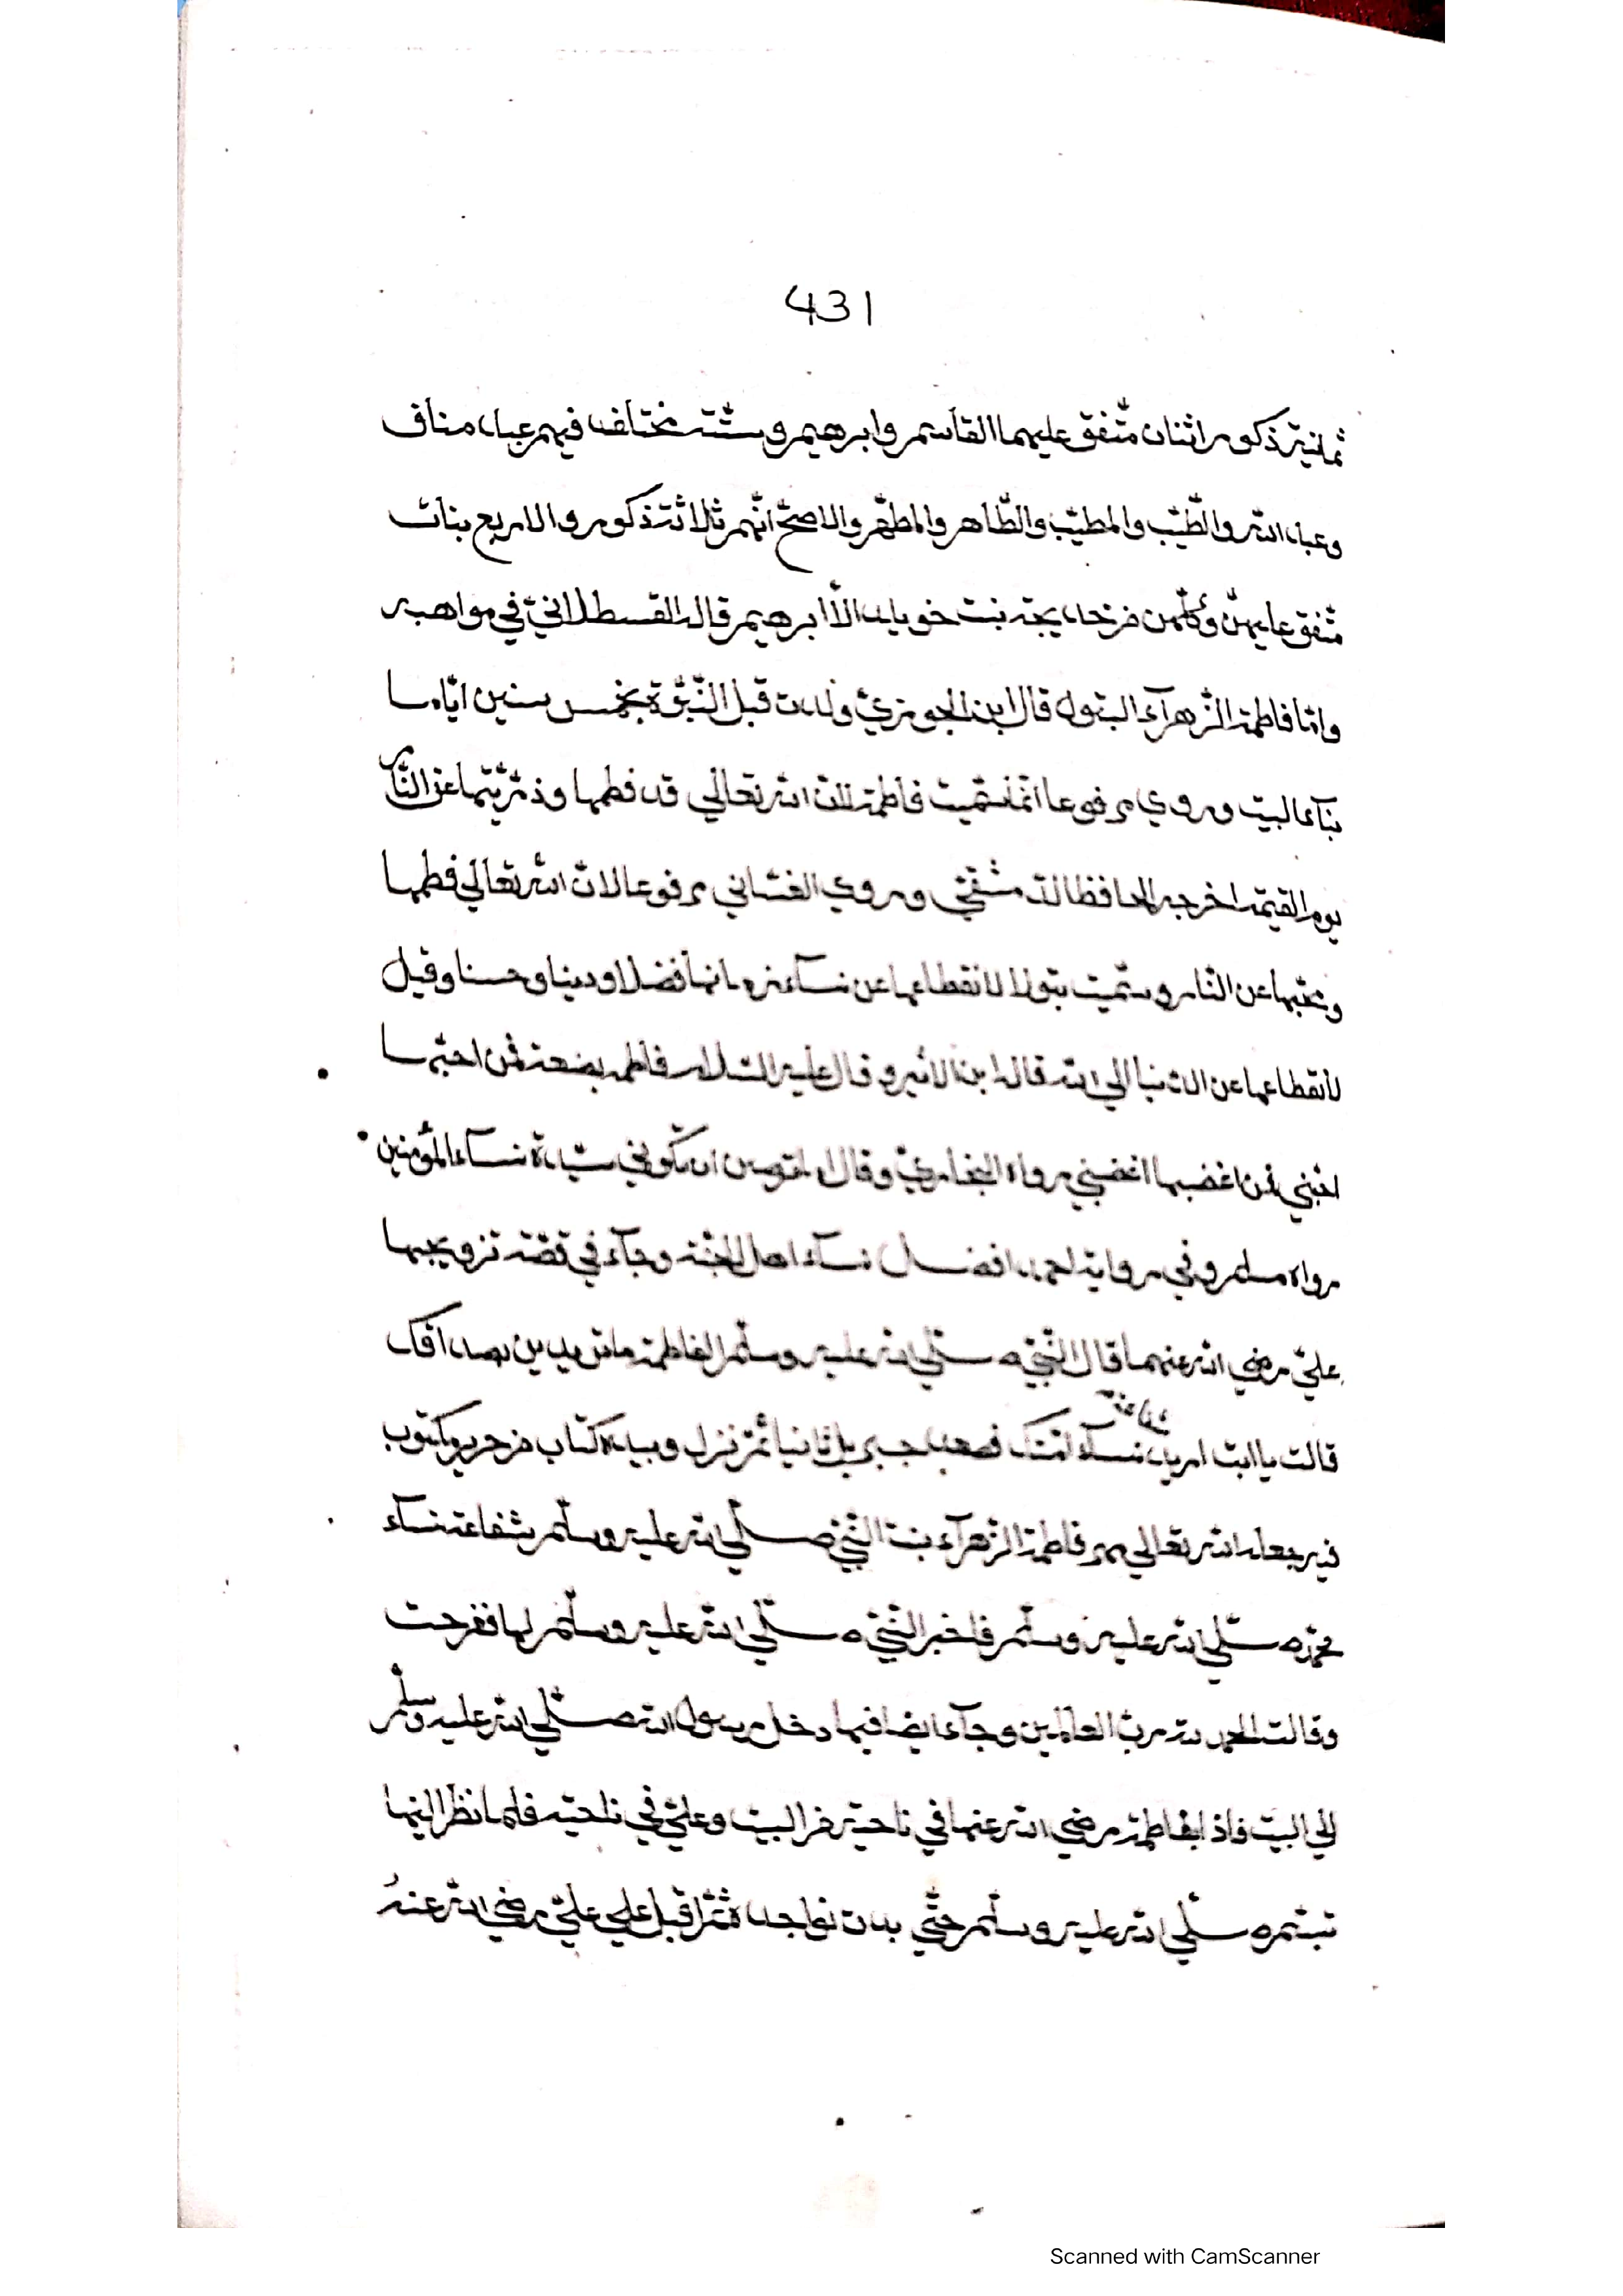 431
ثمانية ذكور اثنان متّفق عليهما القاسم وابرهيم وستّة مختلف فيهم عبد مناف
وعبد الله والطّيّب والمطيّب والطّاهر والمطهّر والاصحّ انّهم ثلاثة ذكور والاربع بنات
متّفق عليهنّ وكلّهن من خديجة بنت خويلد الاّ ابرهيم قاله القسطلانيّ في مواهبه
وامّا فاطمة الزّهرآء البتول قال ابن الجوزيّ ولدت قبل النّبوّة بخمس سنين ايّام
بنآء البيت وروي مرفوعا انّما سمّيت فاطمة لانّ الله تعالي قد فطمها وذرّيّتها عن النّار
يوم القيٰمة اخرجه الحافظ الدّمشقيّ وروي الغسّاني مرفوعا لانّ الله تعالي فطمها
ومحبّيها عن النّار وسمّيت بتولا لانقطاعها عن نسآء زمانها فضلا ودينا وحسنا وقيل
لانقطاعها عن الدّنيا الي الله قاله ابن الاثير و قال عليه السّلام فاطمة بضعة فمن احبّها
احبّني فمن اغضبها اغضبني رواه البخاريّ وقال ان تكوني سيّدة نسآء المؤمنين
رواه مسلم وفي رواية احمد افضل نسآء اهل الجنّة وجآء في قصّة تزويجها
عليّ رضي الله عنهما قال النّبيّ صلّي الله عليه وسلّم لفاطمة ما تريدين بصداقك
قالت يا ابت اريد شفاعة نسآء امّتك فصعد جبريل ثانيا ثمّ نزل وبيده كتاب من حرير مكتوب
فيه جعل الله تعالي مهر فاطمة الزّهرآء بنت النّبيّ صلّي الله عليه وسلّم بشفاعة نسآء
محمّد صلّي الله عليه وسلّم فاخبر النّبيّ صلّي الله عليه وسلّم لها ففرحت
وقالت الحمد لله ربّ العالمين وجآء ايضا فيما دخل رسول الله صلّي الله عليه وسلّم
الي البيت فاذا بفاطمة رضي الله عنها في ناحية من البيت وعليّ في ناحية فلما نظر اليهما
تبسّم صلّي الله عليه وسلّم حتّي بدت نواجده ثمّ اقبل علي عليّ رضي الله عنه
Scanned with CamScanner